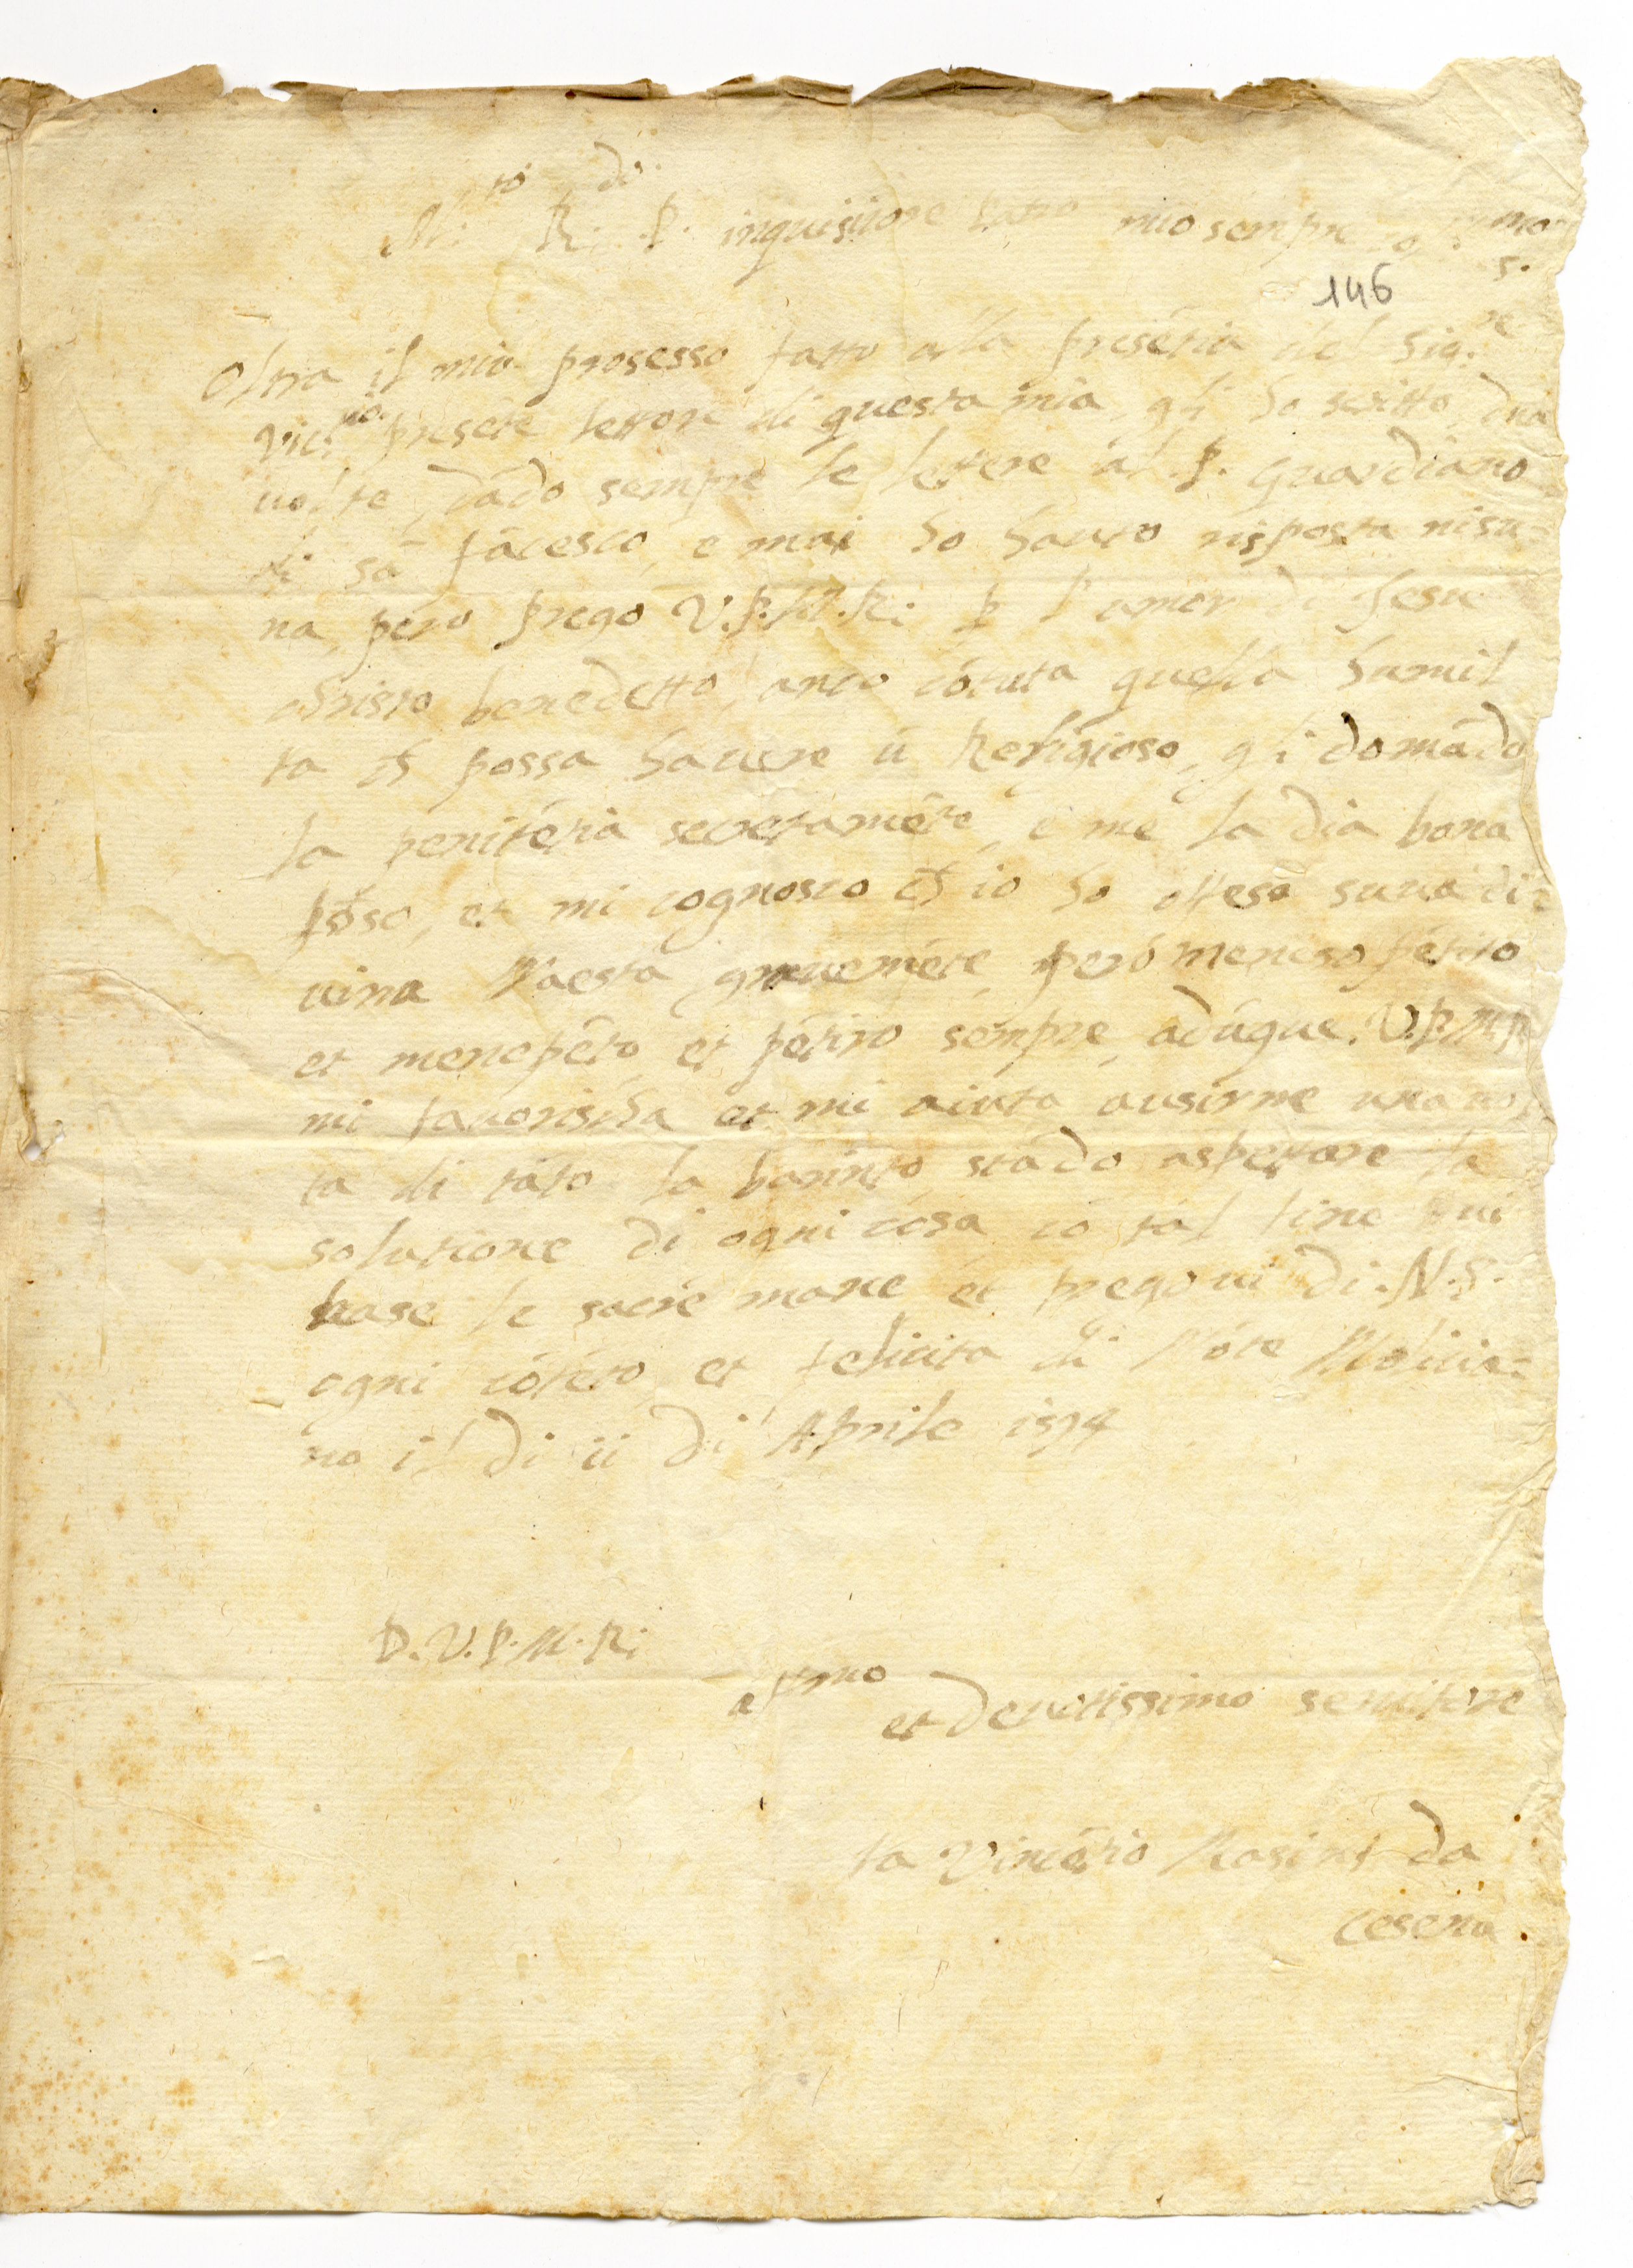 M:to R:do P. inquisitore patro mio sempre
146
Oltra il mio prosesso fatto alla presētia del Sig.re
Vic.rio presēte lettore di questa mia, gli ho scritto dua
uolte, dādo sempre le lettere al P. guardiano
di sā frācesco, e mai ho hauto risposta nisu=
na, pero prego V.P.M.R: p l'amor di Jesu
christo benedetto, anco cō tuta quella humil
ta ch possa hauere ū Religioso, gli domādo
la penitētia secretamēte, e me la dia bona
et mi cognosco ch io ho offeso suua di=
uina Maesta, grauemēte, però pētito
et menepēto, et pētirò sempre, adūque. V.P.M.R
mi favorischa et mi aiuta ausirme una uol
ta di tāto la barinto stādo aspettare la
solutione di ogni cosa cō tal fine vi
base le sacre mane et pregoui di. N.S.
ogni cōtēto, et felicita di Mōte
no il di ii di Aprile 1594
D. V. P. M. R:
aff.mo et devotissimo servitore
fra Vincētio Masini da
Cesena.